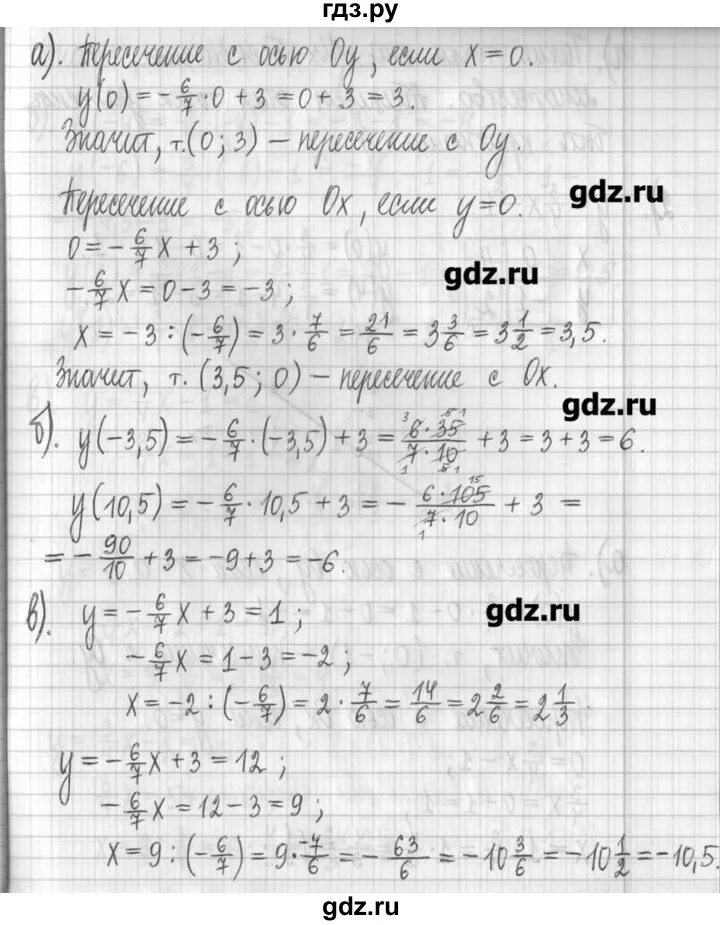 гдз.ру
а). Пересечение с осью Oy, если x=0.
y(0) = -6/7·0 + 3 = 0 + 3 = 3.
Значит, т.(0; 3) – пересечение с Oy.
gdz.ru
Пересечение с осью Ox, если y=0.
0 = -6/7 x + 3 ;
gdz.ru
-6/7 x = 0 - 3 = -3 ;
x = -3 : (-6/7) = 3 · 7/6 = 21/6 = 3 3/6 = 3 1/2 = 3,5.
Значит, т. (3,5 ; 0) – пересечение с Ox.
gdz.ru
б). y(-3,5) = -6/7 · (-3,5) + 3 = 6·35/7·10 + 3 = 3 + 3 = 6.
y(10,5) = -6/7 · 10,5 + 3 = - 6·105/7·10 + 3 =
= - 90/10 + 3 = -9 + 3 = -6.
в). y = -6/7 x + 3 = 1 ;
gdz.ru
-6/7 x = 1 - 3 = -2 ;
x = -2 : (-6/7) = 2 · 7/6 = 14/6 = 2 2/6 = 2 1/3.
y = -6/7 x + 3 = 12 ;
-6/7 x = 12 - 3 = 9 ;
x = 9 : (-6/7) = 9 · -7/6 = - 63/6 = -10 3/6 = -10 1/2 = -10,5.
gdz.ru